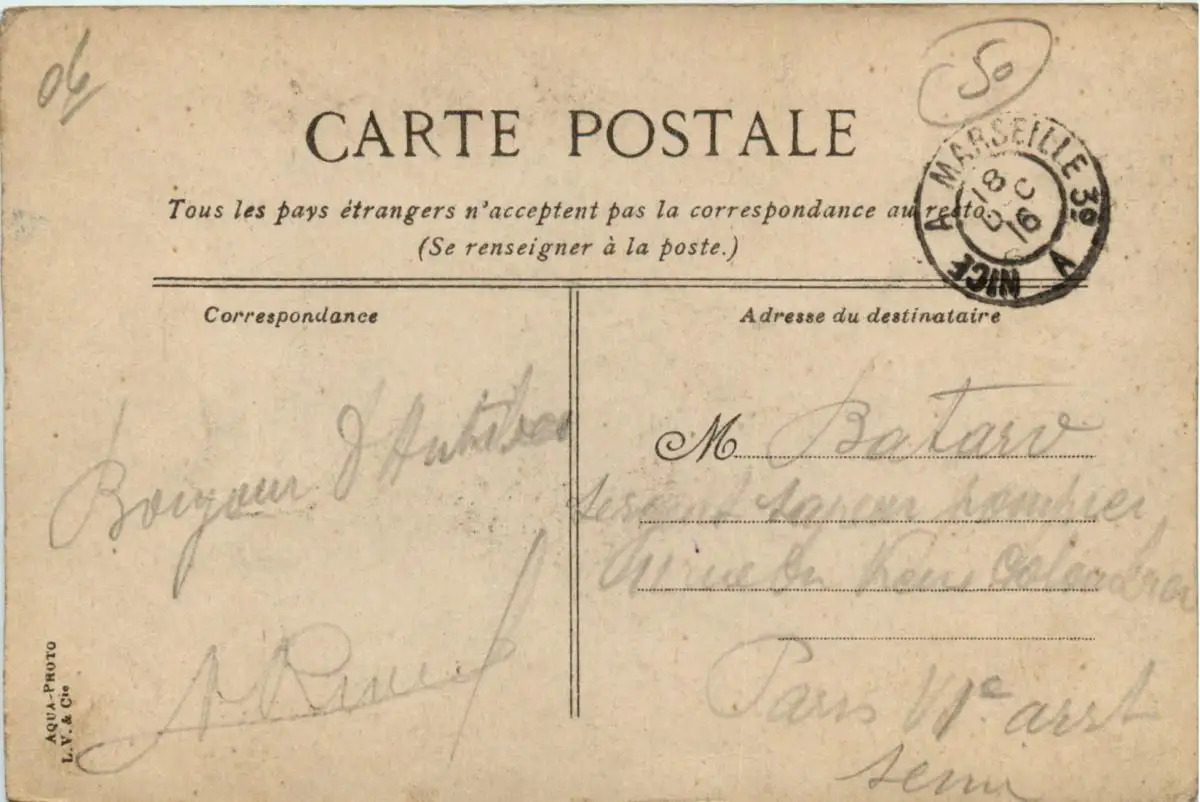 06
50
CARTE POSTALE
Tous les pays étrangers n'acceptent pas la correspondance au recto
(Se renseigner à la poste.)
MARSEILLE 3º A
NICE A
18
16
Correspondance
Adresse du destinataire
Bonjour d'Antibes
M Batard
sergent sapeur pompier
rue du Vieux Colombier
Paris VIe arrt
Seine
AQUA-PHOTO
L.V. & Cie